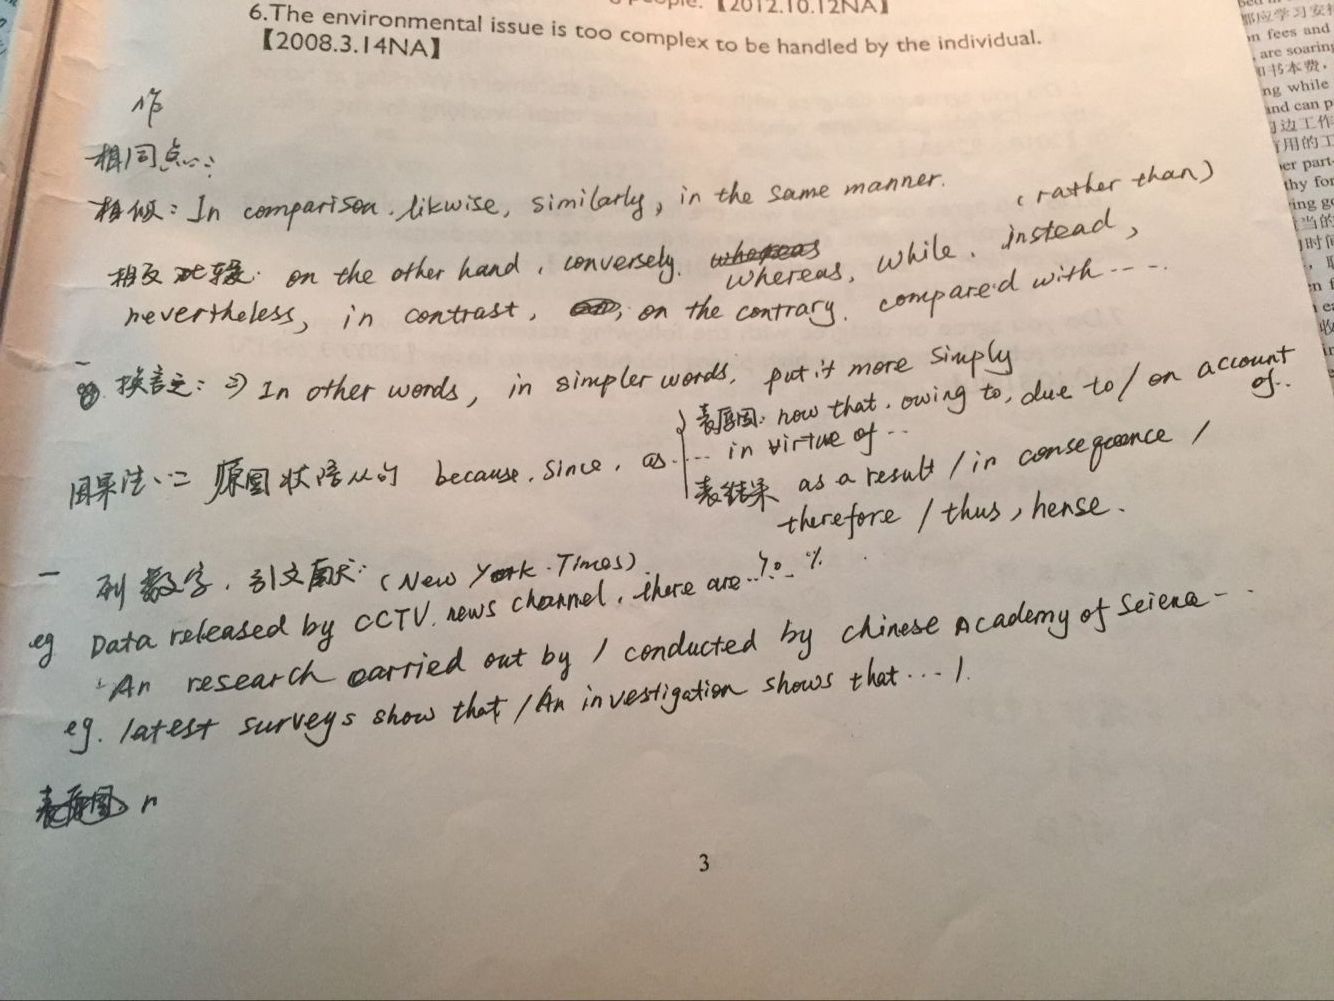 people. 【2012.10.12NA】
6.The environmental issue is too complex to be handled by the individual.
【2008.3.14NA】
作
相同点:
相似: In comparison, likwise, similarly, in the same manner.
(rather than)
相反 对较: on the other hand, conversely, whereas whereas, while, instead,
nevertheless, in contrast, on the contrary, compared with ·····
换言之: => In other words, in simpler words, put it more simply
因果法: 原因状语从句 because, since, as
表原因: now that, owing to, due to / on account of..
... in virtue of ..
表结果 as a result / in consequence /
therefore / thus, hense.
一 列数字, 引文献: (New York Times)
eg Data released by CCTV. news channel, there are ... %
An research carried out by / conducted by chinese Academy of Sciena - ·
eg. latest surveys show that / An investigation shows that ··· /.
表原因 n
3
都应学习安
n fees and
are soaring
书本费,
ng while
and can p
边工作
用的工
er part-
thy for
ing g
当的
时间